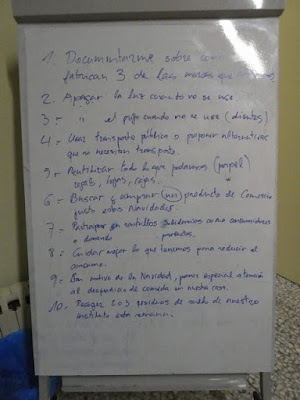 1. Documentarme sobre como
fabrican 3 de las marcas que
2. Apagar la luz cuando no se use.
3- " el grifo cuando no se use (dientes)
4- Usar transporte público o proponer alternativas
que no necesiten transporte.
5- Reutilizar todo lo que podamos (papel)
cajas
6- Buscar y comprar un producto de Comercio
justo estas Navidades.
7-
o
8- Cuidar mejor lo que tenemos para reducir el
consumo.
9- Con motivo de la Navidad, poner especial atención
al desperdicio de comida en nuestra casa.
10- Recoger 2 o 3 residuos de suelo de nuestro
instituto esta semana.